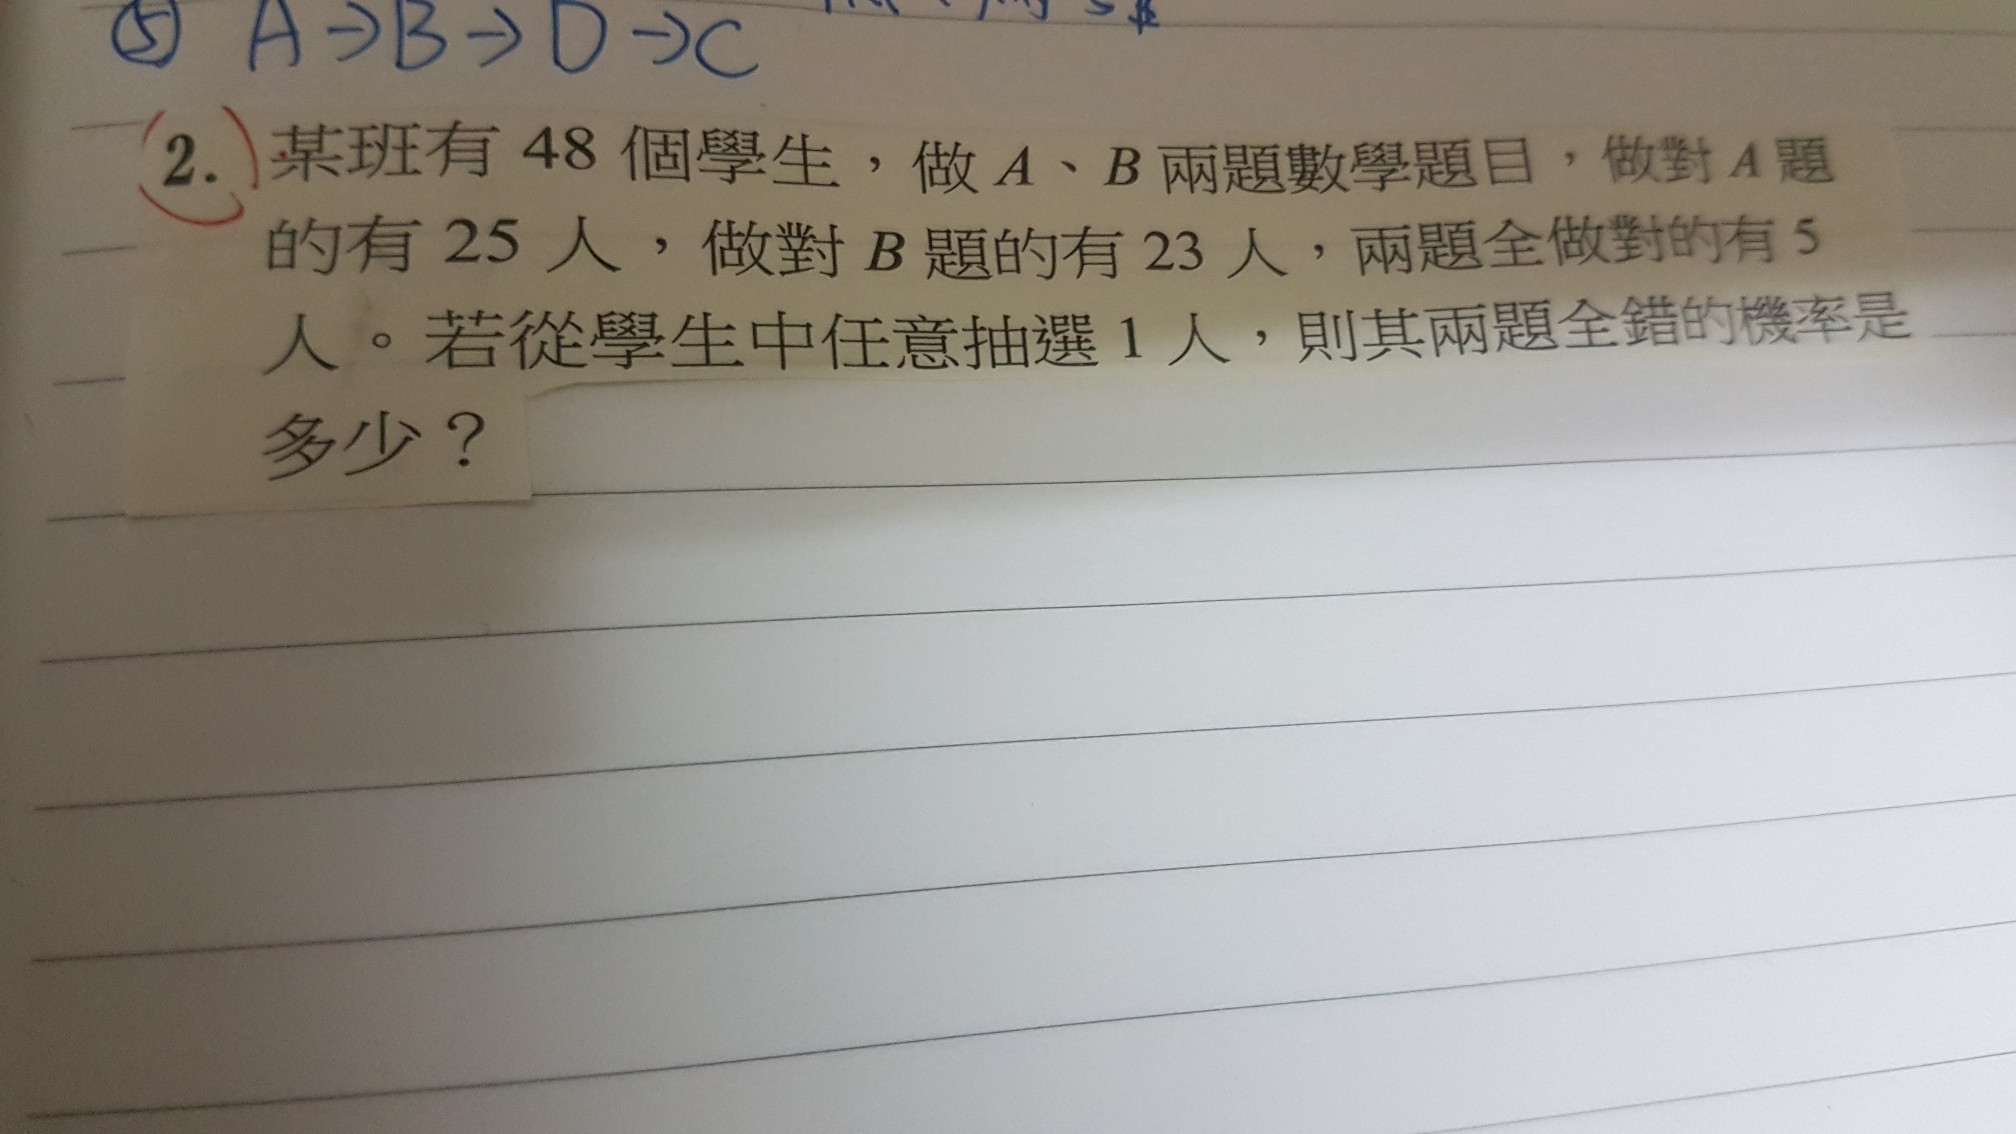 ⑤ A→B→D→C
2. 某班有 48 個學生，做 A、B 兩題數學題目，做對 A 題
的有 25 人，做對 B 題的有 23 人，兩題全做對的有 5
人。若從學生中任意抽選 1 人，則其兩題全錯的機率是
多少？